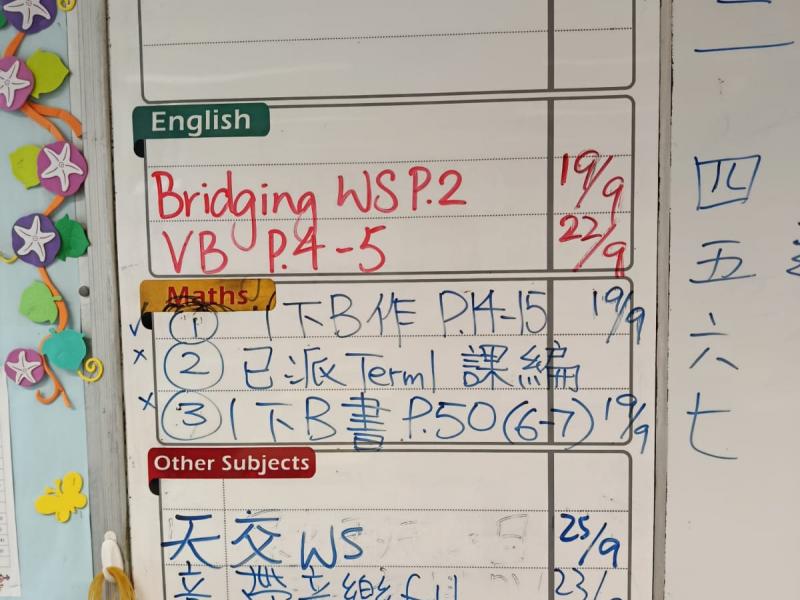 English
Bridging WS P.2 19/9
VB P.4-5 22/9
Maths
✓ ① 1下B作 P.14-15 19/9
x ② 已派Term1 課編
x ③ 1下B書 P.50(6-7) 19/9
Other Subjects
天交 WS 25/9
音 帶音樂 23/
四
五
六
七